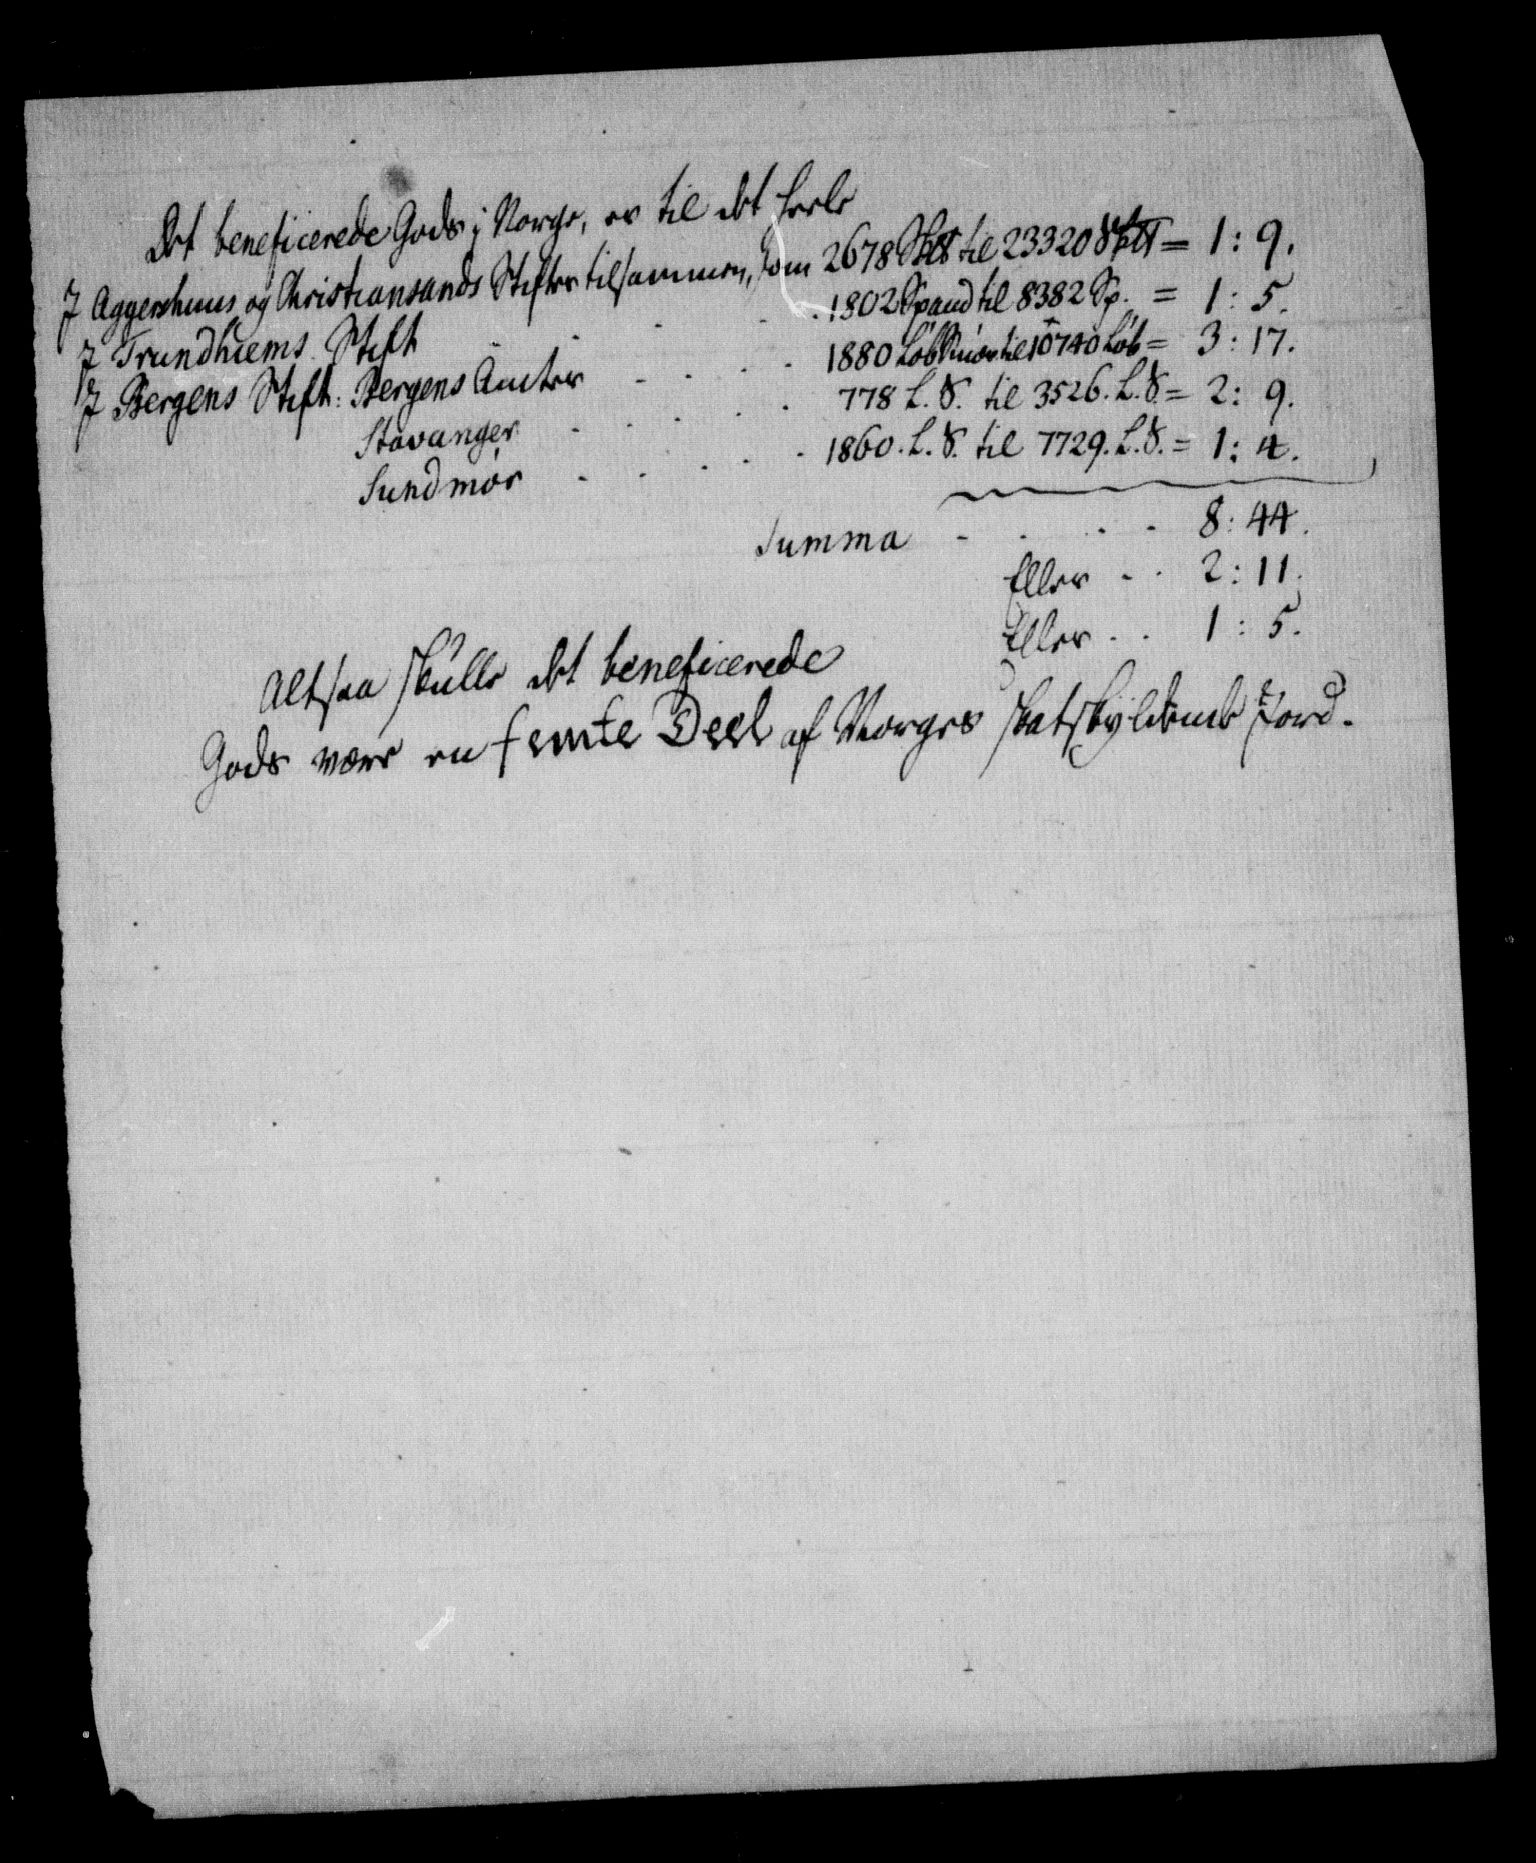 Det beneficerede Gods i Norge, er til det heele
J Aggershuus og Christiansands Stifter tilsammen, som 2678 til 23320 = 1 : 9.
J Trundhiems Stift . . . . 1802 Spand til 8382 Sp. = 1 : 5.
J Bergens Stift: Bergens Amter . . . . 1880 Løb Smør til 10740 Løb = 3 : 17.
Stavanger . . . . 778 L. ℔. til 3526. L. ℔. = 2 : 9.
Sundmør . . . . . 1860. L. ℔. til 7729. L. ℔. = 1 : 4.
Summa - . . . 8 : 44.
Eller . . 2 : 11.
Eller . . 1 : 5.
Altsaa skulle det beneficerede
Gods være en femte Deel af Norges skatskyldende Jord.